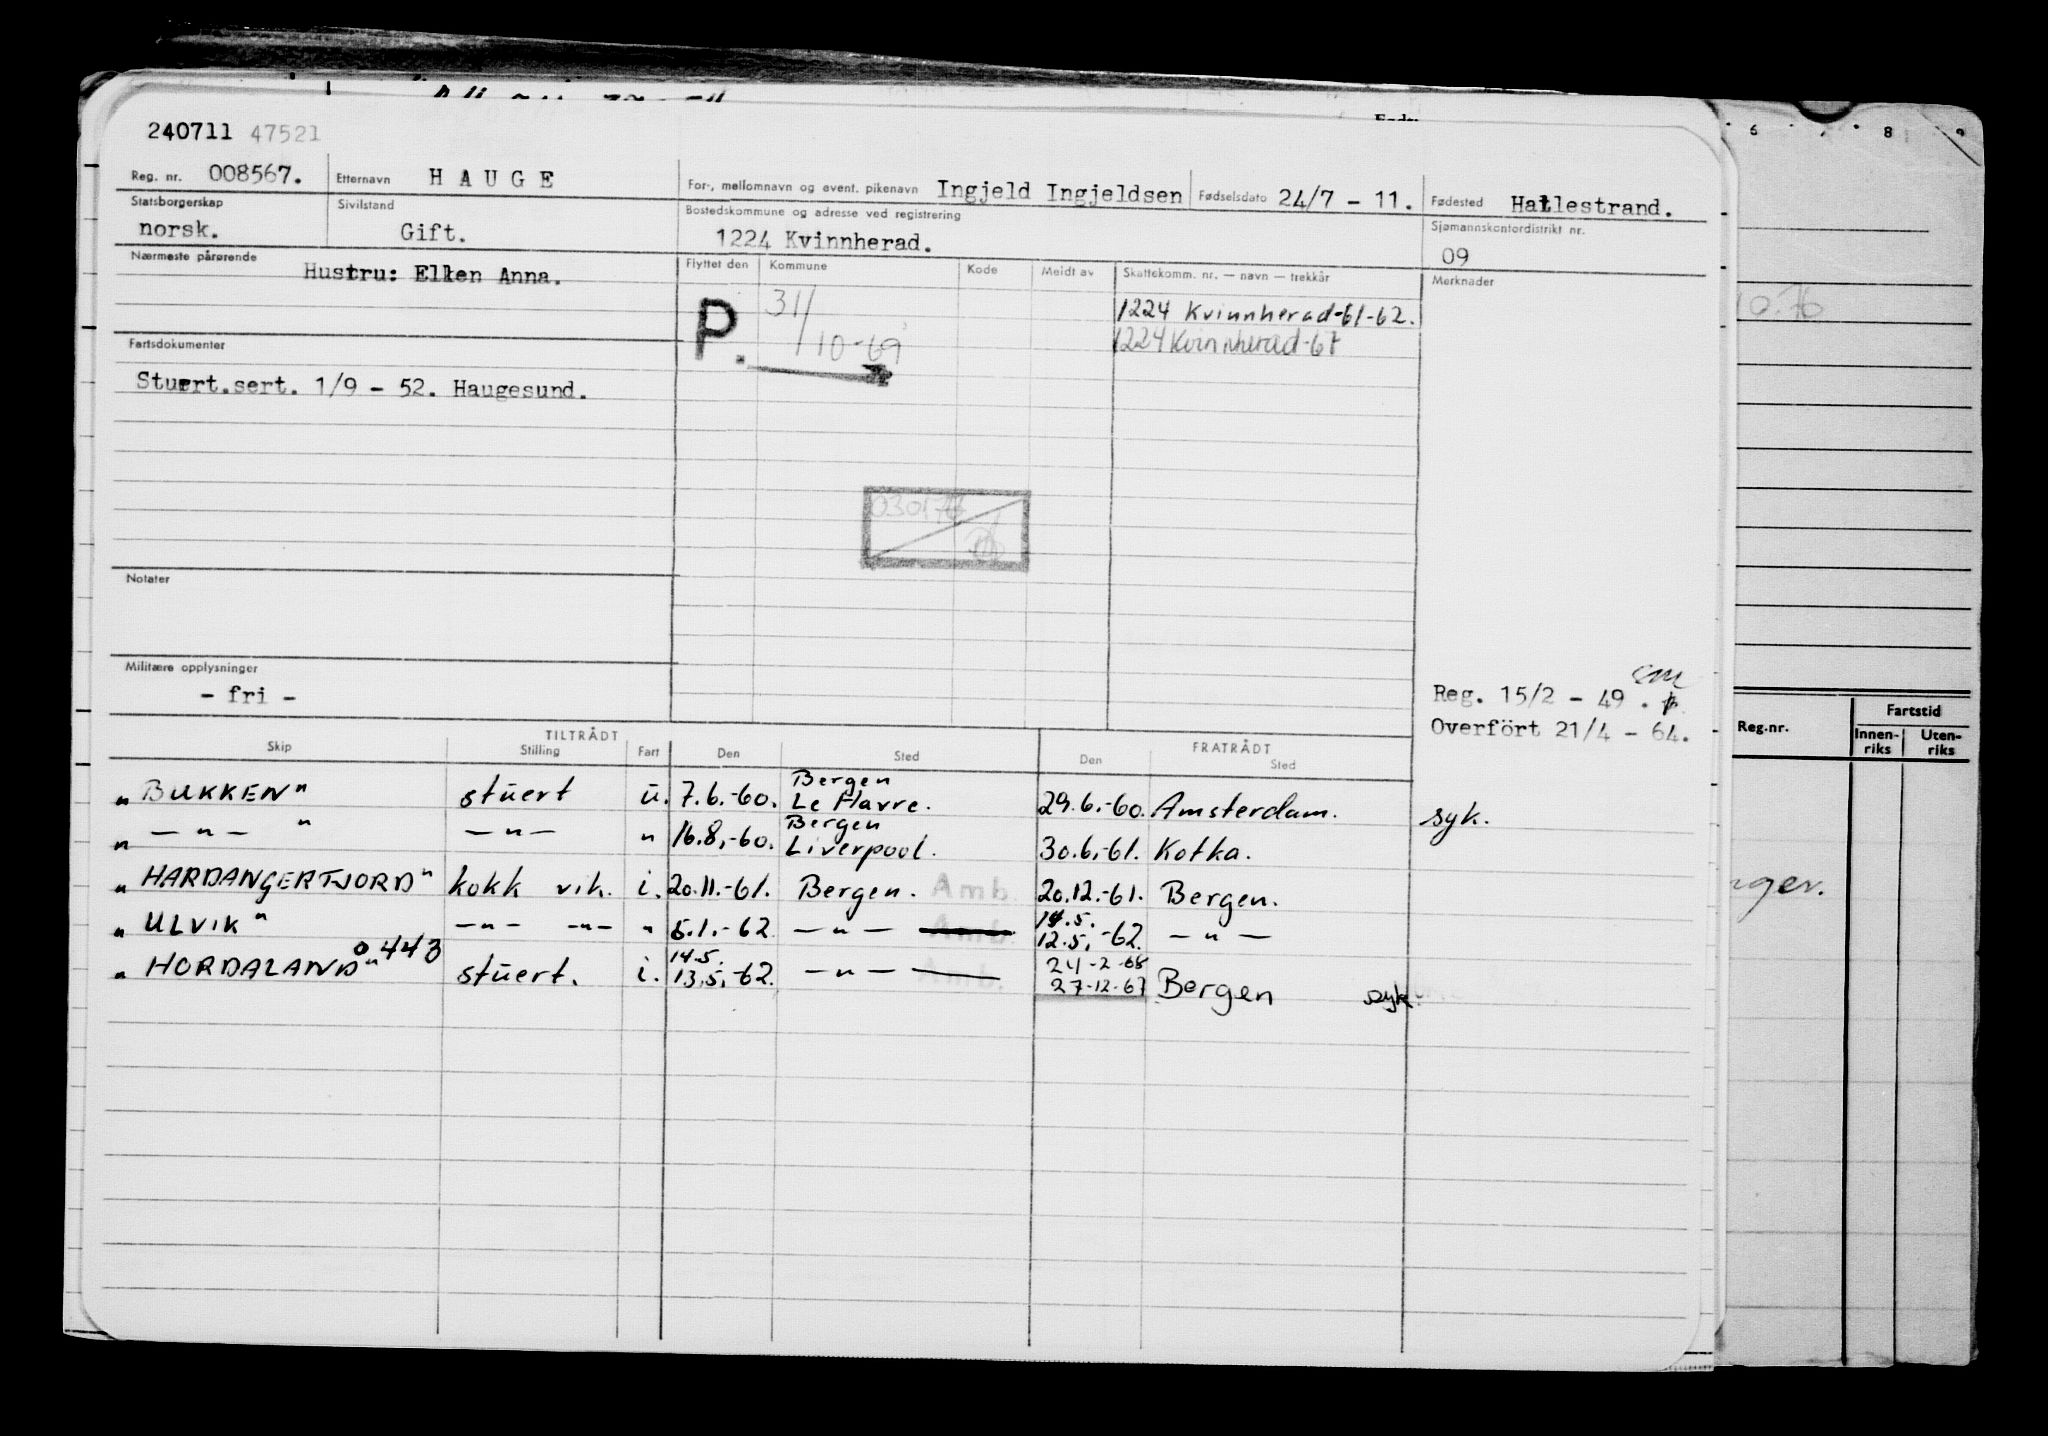 240711 47521
Reg. nr. 008567. Etternavn HAUGE For-, mellomnavn og event. pikenavn Ingjeld Ingjeldsen Fødselsdato 24/7 - 11. Fødested Hatlestrand.
Statsborgerskap norsk. Sivilstand Gift. Bostedskommune og adresse ved registrering 1224 Kvinnherad. Sjømannskontordistrikt nr. 09
Nærmeste pårørende Hustru: Ellen Anna.
Flyttet den Kommune Kode Meldt av Skattekomm. nr. — navn — trekkår Merknader
P. 31/10-69 1224 Kvinnherad-61-62.
1224 Kvinnherad-67
Fartsdokumenter
Stuert.sert. 1/9 - 52. Haugesund.
030176
Notater
Militære opplysninger
- fri -
Reg. 15/2 - 49.
Overfört 21/4 - 64.
TILTRÅDT FRATRÅDT
Skip Stilling Fart Den Sted Den Sted
„BUKKEN" stuert u. 7.6.-60. Bergen Le Havre. 29.6.-60. Amsterdam. syk.
„ — " — " — " — " 16.8.-60. Bergen Liverpool. 30.6.-61. Kotka.
„HARDANGERFJORD" kokk vik. i. 20.11.-61. Bergen. Amb 20.12.-61. Bergen.
„ULVIK" — " — — " — " 5.1.-62 — " — Amb. 14.5. 12.5.-62. — " —
0443
„HORDALAND" stuert. i. 14.5. 13.5.-62. — " — Amb. 24-2-68 27-12-67 Bergen syk.
6 8 9
10.76
Reg.nr. Fartstid
Innen-riks Uten-riks